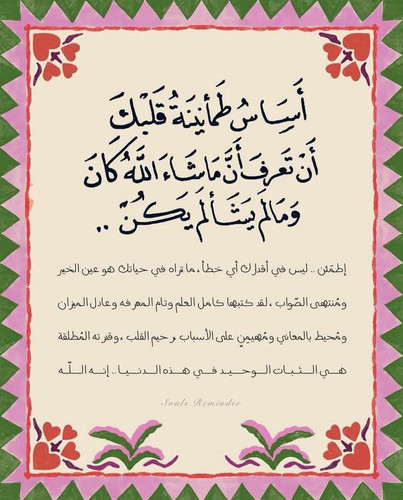 أَسَاسُ طَمأنِينَةُ قَلبْكَ
أَنْ تَعرفَ أَنَّ مَا شَاءَ اللَّهُ كَانَ
وَمَالَم يَشَأ لَم يَكُنّ ..
إطمَئن .. ليس في أقدارك أي خطأ ، ما تراه في حياتك هو عين الخير
ومُنتهى الصّواب ، لقد كتبها كامل العلم وتام المعرفه وعادل الميزان
ومُحيط بالمعاني ومُهيمِنٍ على الأسباب ورحيم القلب ، وقدرته المُطلقة
هــي الـثـبـات الــوحـيـد فــي هــذه الـدنـيـا .. إنـه الـلّـه
Souls Reminder